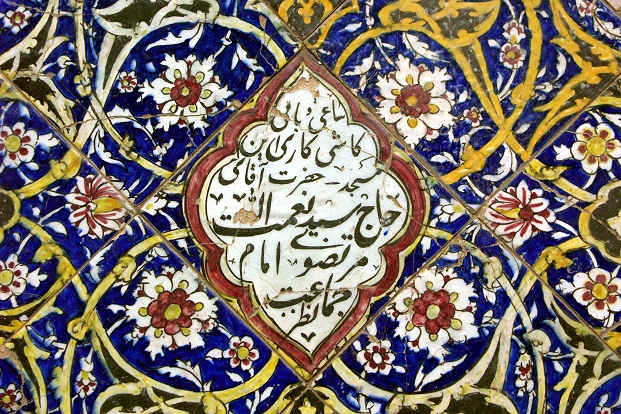 ساعی و بانی
کاشی کاری این
مسجد حضرت آقای
حاج سید نعمت الله
مرتضوی امام
جماعت